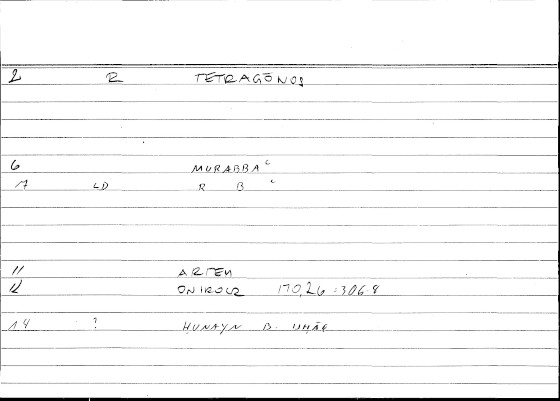 2 R TETRAGŌNOS
6 MURABBAʿ
7 LD R B ʿ
11 ARTEM
12 ONIROCR 170,26 = 306.8
14 ? HUNAYN B. ISHĀQ